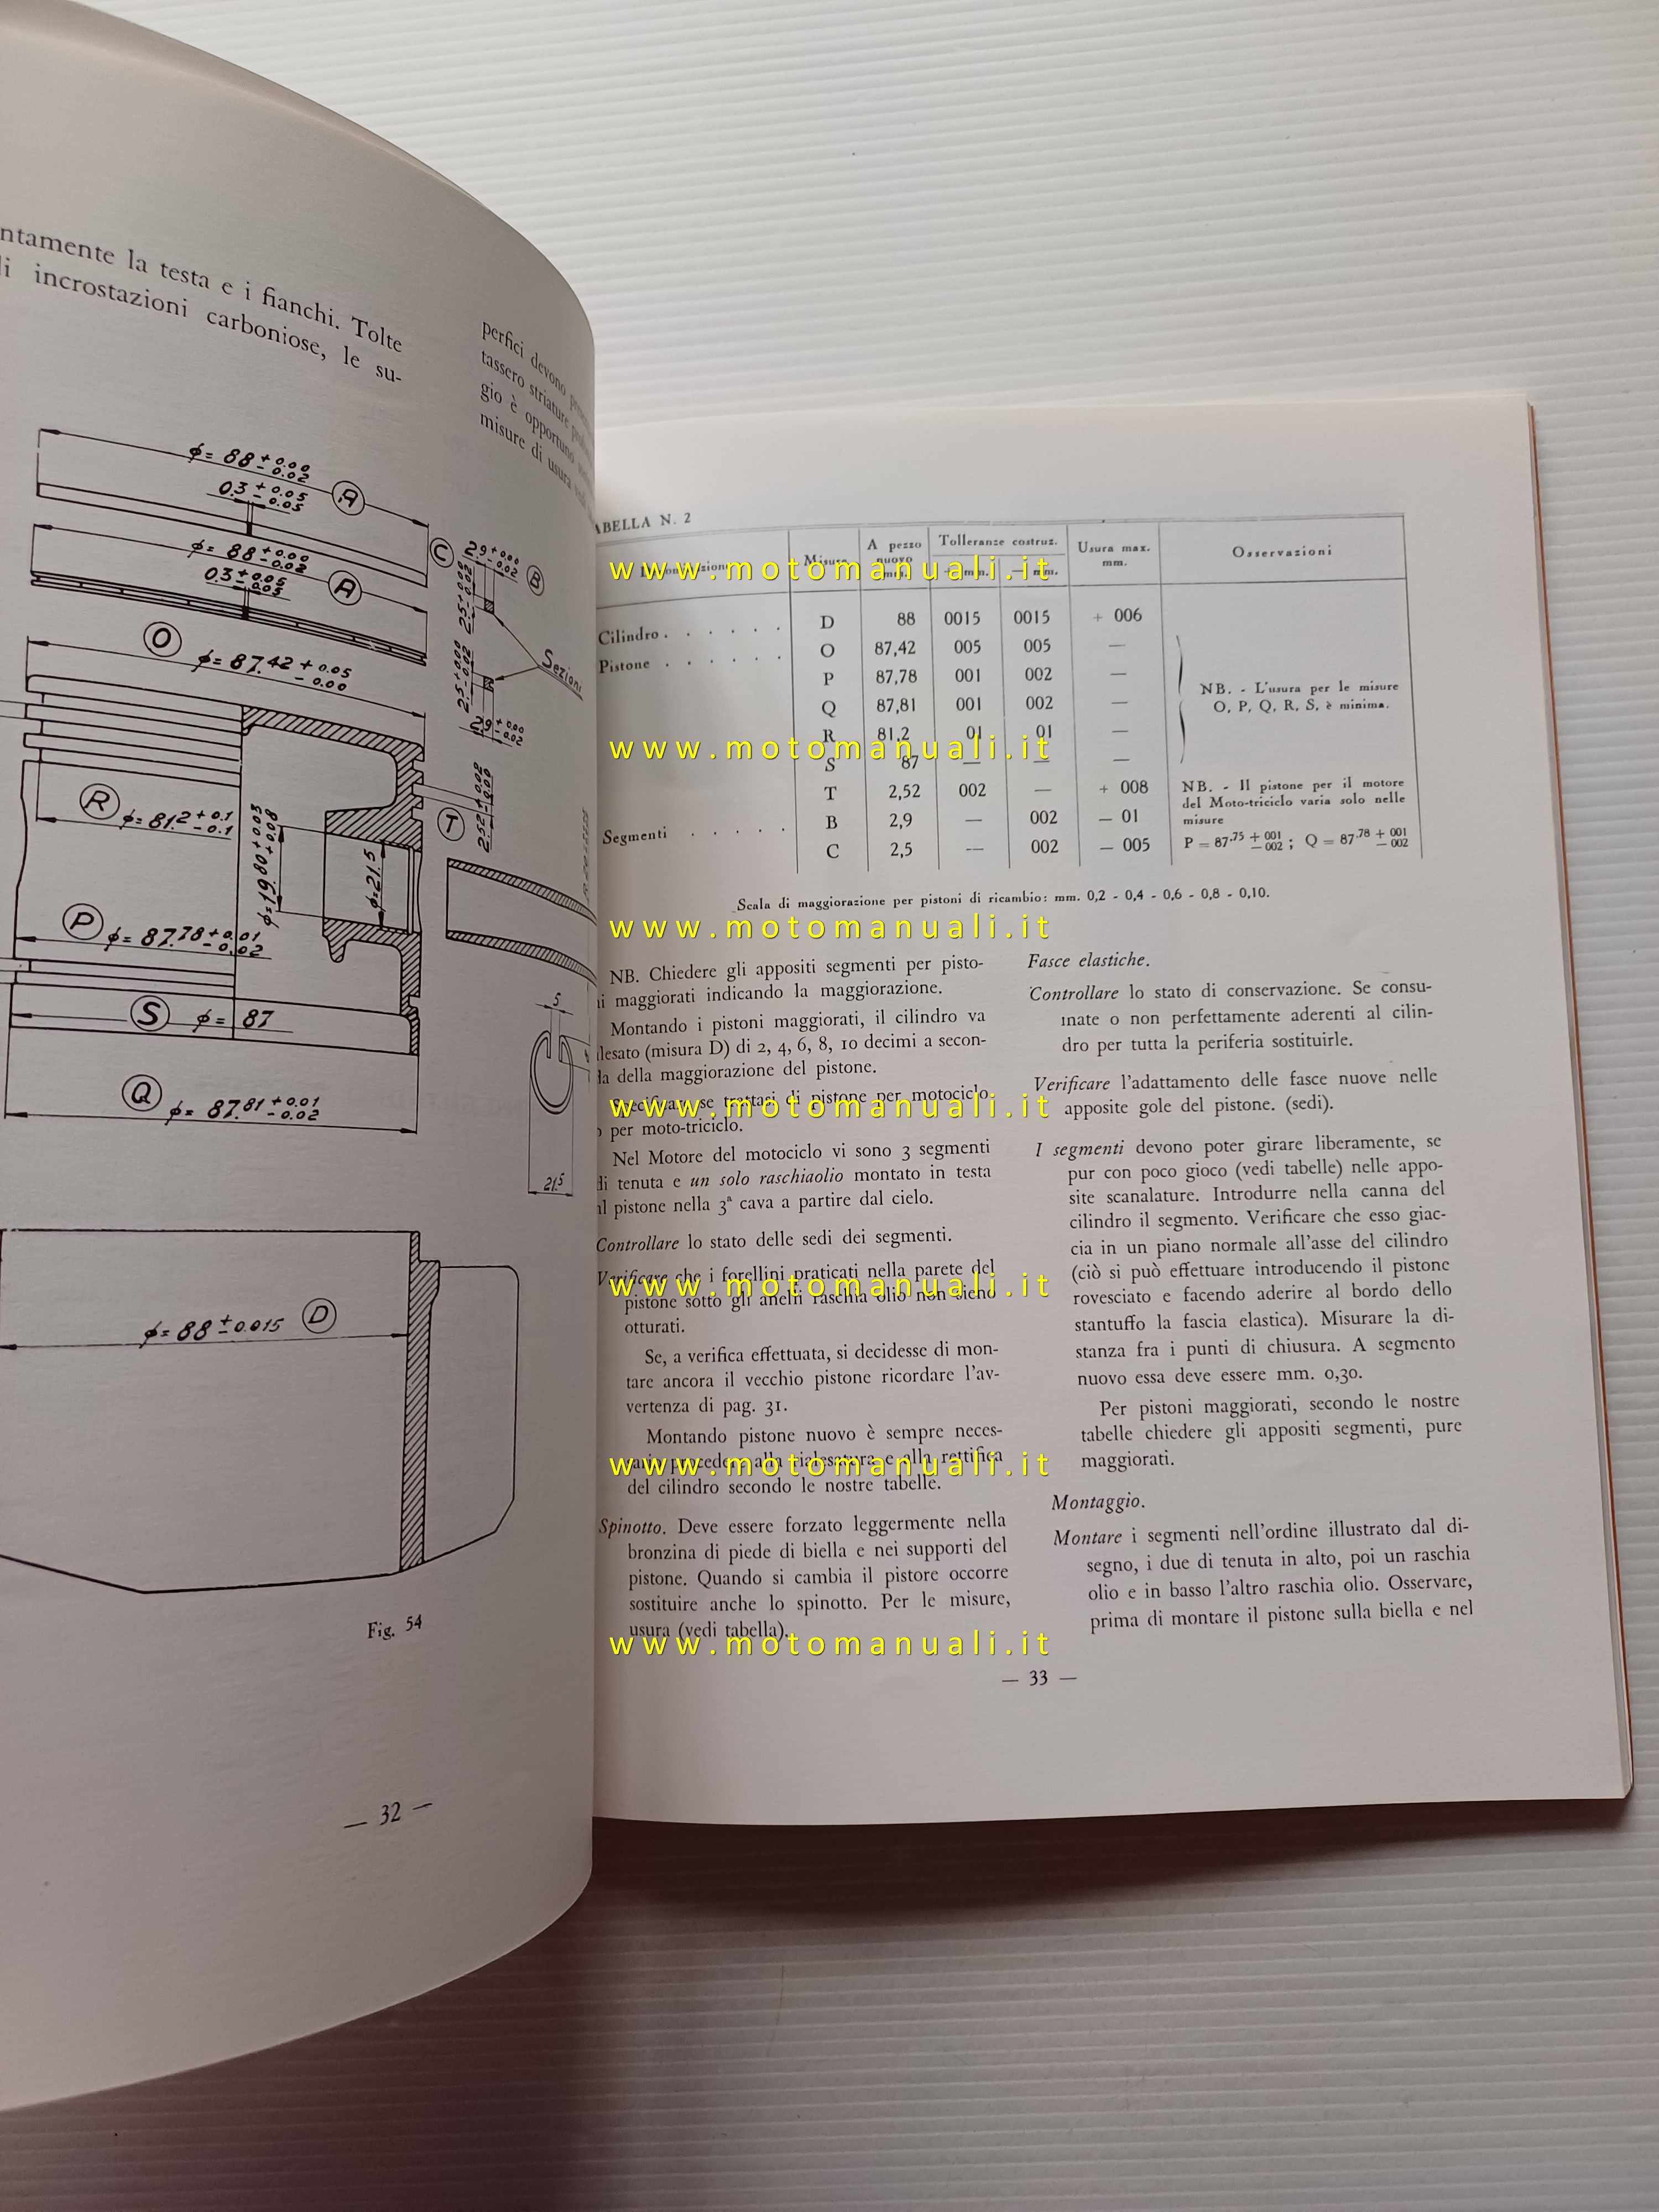 ntamente la testa e i fianchi. Tolte
li incrostazioni carboniose, le su-
perfici devono
tassero striature
gio è opportuno
misure di usura
φ= 88 + 0.00 - 0.02
0.3 + 0.05 - 0.05
A
φ= 88 + 0.00 - 0.02
0.3 + 0.05 - 0.05
A
C
2.9 + 0.00 - 0.02
B
2.5 + 0.00 - 0.02
2.5 + 0.00 - 0.02
Sezioni
2.9 + 0.00 - 0.02
O
φ= 87.42 + 0.05 - 0.00
R
φ= 81.2 + 0.1 - 0.1
T
2.52 + 0.02 - 0.00
φ=19.80 + 0.05 + 0.08
φ=21.5
P
φ= 87.78 + 0.01 - 0.02
S
φ= 87
Q
φ= 87.81 + 0.01 - 0.02
5
21.5
φ= 88 ± 0.015
D
Fig. 54
— 32 —
ABELLA N. 2
Misure
A pezzo nuovo mm.
Tolleranze costruz.
+ mm.
— mm.
Usura max. mm.
Osservazioni
Cilindro . . . . . . D 88 0015 0015 + 006
Pistone . . . . . . O 87,42 005 005 —
P 87,78 001 002 —
Q 87,81 001 002 —
R 81,2 01 01 —
S 87 — — —
T 2,52 002 — + 008
Segmenti . . . . . B 2,9 — 002 — 01
C 2,5 — 002 — 005
NB. - L'usura per le misure
O, P, Q, R, S, è minima.
NB. - Il pistone per il motore
del Moto-triciclo varia solo nelle
misure
P = 87.75 + 001 — 002 ; Q = 87.78 + 001 — 002
Scala di maggiorazione per pistoni di ricambio: mm. 0,2 - 0,4 - 0,6 - 0,8 - 0,10.
NB. Chiedere gli appositi segmenti per pisto-
ni maggiorati indicando la maggiorazione.
Montando i pistoni maggiorati, il cilindro va
lesato (misura D) di 2, 4, 6, 8, 10 decimi a secon-
da della maggiorazione del pistone.
Specificare se trattasi di pistone per motociclo
o per moto-triciclo.
Nel Motore del motociclo vi sono 3 segmenti
di tenuta e un solo raschiaolio montato in testa
al pistone nella 3ª cava a partire dal cielo.
Controllare lo stato delle sedi dei segmenti.
Verificare che i forellini praticati nella parete del
pistone sotto gli anelli raschia olio non sieno
otturati.
Se, a verifica effettuata, si decidesse di mon-
tare ancora il vecchio pistone ricordare l'av-
vertenza di pag. 31.
Montando pistone nuovo è sempre neces-
sario procedere alla rialesatura e alla rettifica
del cilindro secondo le nostre tabelle.
Spinotto. Deve essere forzato leggermente nella
bronzina di piede di biella e nei supporti del
pistone. Quando si cambia il pistore occorre
sostituire anche lo spinotto. Per le misure,
usura (vedi tabella).
Fasce elastiche.
Controllare lo stato di conservazione. Se consu-
mate o non perfettamente aderenti al cilin-
dro per tutta la periferia sostituirle.
Verificare l'adattamento delle fasce nuove nelle
apposite gole del pistone. (sedi).
I segmenti devono poter girare liberamente, se
pur con poco gioco (vedi tabelle) nelle appo-
site scanalature. Introdurre nella canna del
cilindro il segmento. Verificare che esso giac-
cia in un piano normale all'asse del cilindro
(ciò si può effettuare introducendo il pistone
rovesciato e facendo aderire al bordo dello
stantuffo la fascia elastica). Misurare la di-
stanza fra i punti di chiusura. A segmento
nuovo essa deve essere mm. 0,30.
Per pistoni maggiorati, secondo le nostre
tabelle chiedere gli appositi segmenti, pure
maggiorati.
Montaggio.
Montare i segmenti nell'ordine illustrato dal di-
segno, i due di tenuta in alto, poi un raschia
olio e in basso l'altro raschia olio. Osservare,
prima di montare il pistone sulla biella e nel
— 33 —
www.motomanuali.it
www.motomanuali.it
www.motomanuali.it
www.motomanuali.it
www.motomanuali.it
www.motomanuali.it
www.motomanuali.it